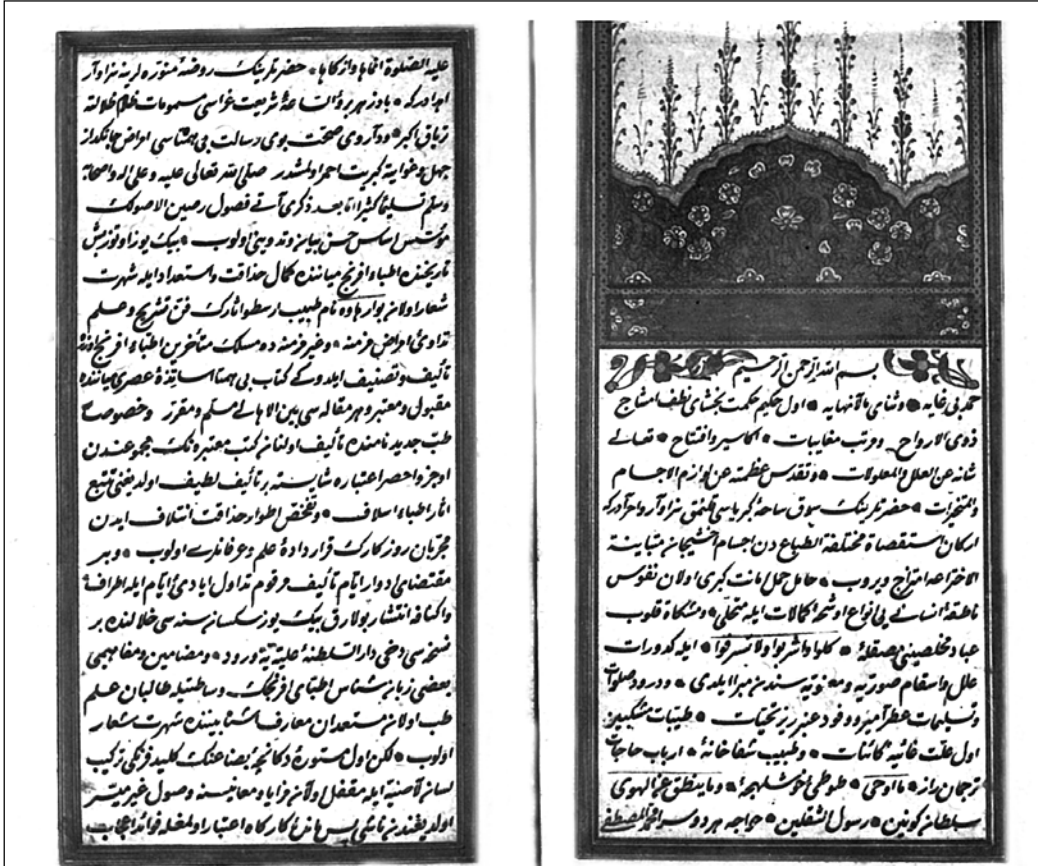 بسم الله الرحمن الرحيم
حمد بی غایه و ثنای مالانهایه اول حکیم حکمت بخشای لطف امشاج
ذوی الارواح و مرتب مغایبات اکاسیر و افتتاح تعالی
شانه عن العلل والمعلولات و تقدس عظمته عن لوازم الاجسام
والمتحیزات حضرتلرینک ساحهٔ کبریاسی سزاوار و احرادرکه
ارکان استقصاة مختلفة الطباع دن اجسام متباینة
الاختراعه امتزاج ویروب حامل حمل امانت کبری اولان نفوس
ناطقهٔ انسانی یی انواع کمالات ایله متحلی و مشکاة قلوب
عباد مخلصینی بصقلهٔ کلوا واشربوا ولا تسرفوا ایله کدورات
علل و اسقام صوریه و معنویه سندن مبرا ایلدی و درود صلوات
و تسلیمات عطر آمیز و وفود عنبر ریز تحیات طیبات
اول علت غائیهٔ کائنات و طبیب شفاخانهٔ ارباب حاجات
ترجمان راز ما اوحی طوطئ خوش لهجهٔ وما ینطق عن الهوی
سلطان کونین رسول الثقلین خواجه هر دو سرا محمد المصطفی
علیه الصلوة انماها و ازکاها حضرتلرینک روضهٔ منوره لرینه سزاوار
شریعت غراسی مسمومات ظلام ضلالته
تریاق اکبر و داروی صحت بوی رسالت بی همتاسی امراض جانکداز
جهل و غوایته کبریت احمر اولمشدر صلی الله تعالی علیه وعلی اله واصحابه
وسلم تسلیما کثیرا اما بعد ذکری آتی فصول رصین الاصولک
مؤسس اساس حسن بیان و تدوینی اولوب بیک یوز اوتوز بش
تاریخنده اطباء افرنج میاننده کمال حذاقت و استعداد ایله شهرت
شعار اولان بوارهاوه نام طبیب ارسطو آثارک فن تشریح و علم
تداوئ امراض مزمنه و غیر مزمنه ده مسلک متأخرین اطباء افرنج اوزره
تألیف و تصنیف ایلدوکی کتاب بی همتا اساتذهٔ عصری میاننده
مقبول و معتبر و هر مقاله سی بین الاهالی مسلم و مقرر و خصوصا
طب جدید نامنده تألیف اولنان کتب معتبره نک مجموعندن
اوجز و احصر اعتباره شایسته بر تألیف لطیف اولدیغنی تتبع
آثار اطباء اسلاف و تفحص اطوار حذاقت ائتلاف ایدن
مجربان روزکارک قرار دادهٔ علم و عرفانلری اولوب و بر
مقتضای ادوار ایام تألیف مرقوم تداول ایادئ انام ایله اطرافه
و اکنافه انتشار بولارق بیک یوز سکسان سنه سی خلالنده بر
نسخه سی دخی دار السلطنهٔ علیه یه ورود و مضامین و مفاهیمی
بعضی زبان شناس اطبای افرنجک وساطتیله طالبان علم
طب اولان مستعدان معارف بیننده شهرت شعار
اولوب لکن اول مستورهٔ دکانچهٔ بضاعتک کلید فرنکی ترکیب
لسان لاتینیه ایله مقفل اولان مزایا و معانیسنه وصول غیر میسر
اولدیغندن ناشی پس ماندهٔ کارکاه اعتبار اولمغله فوائد